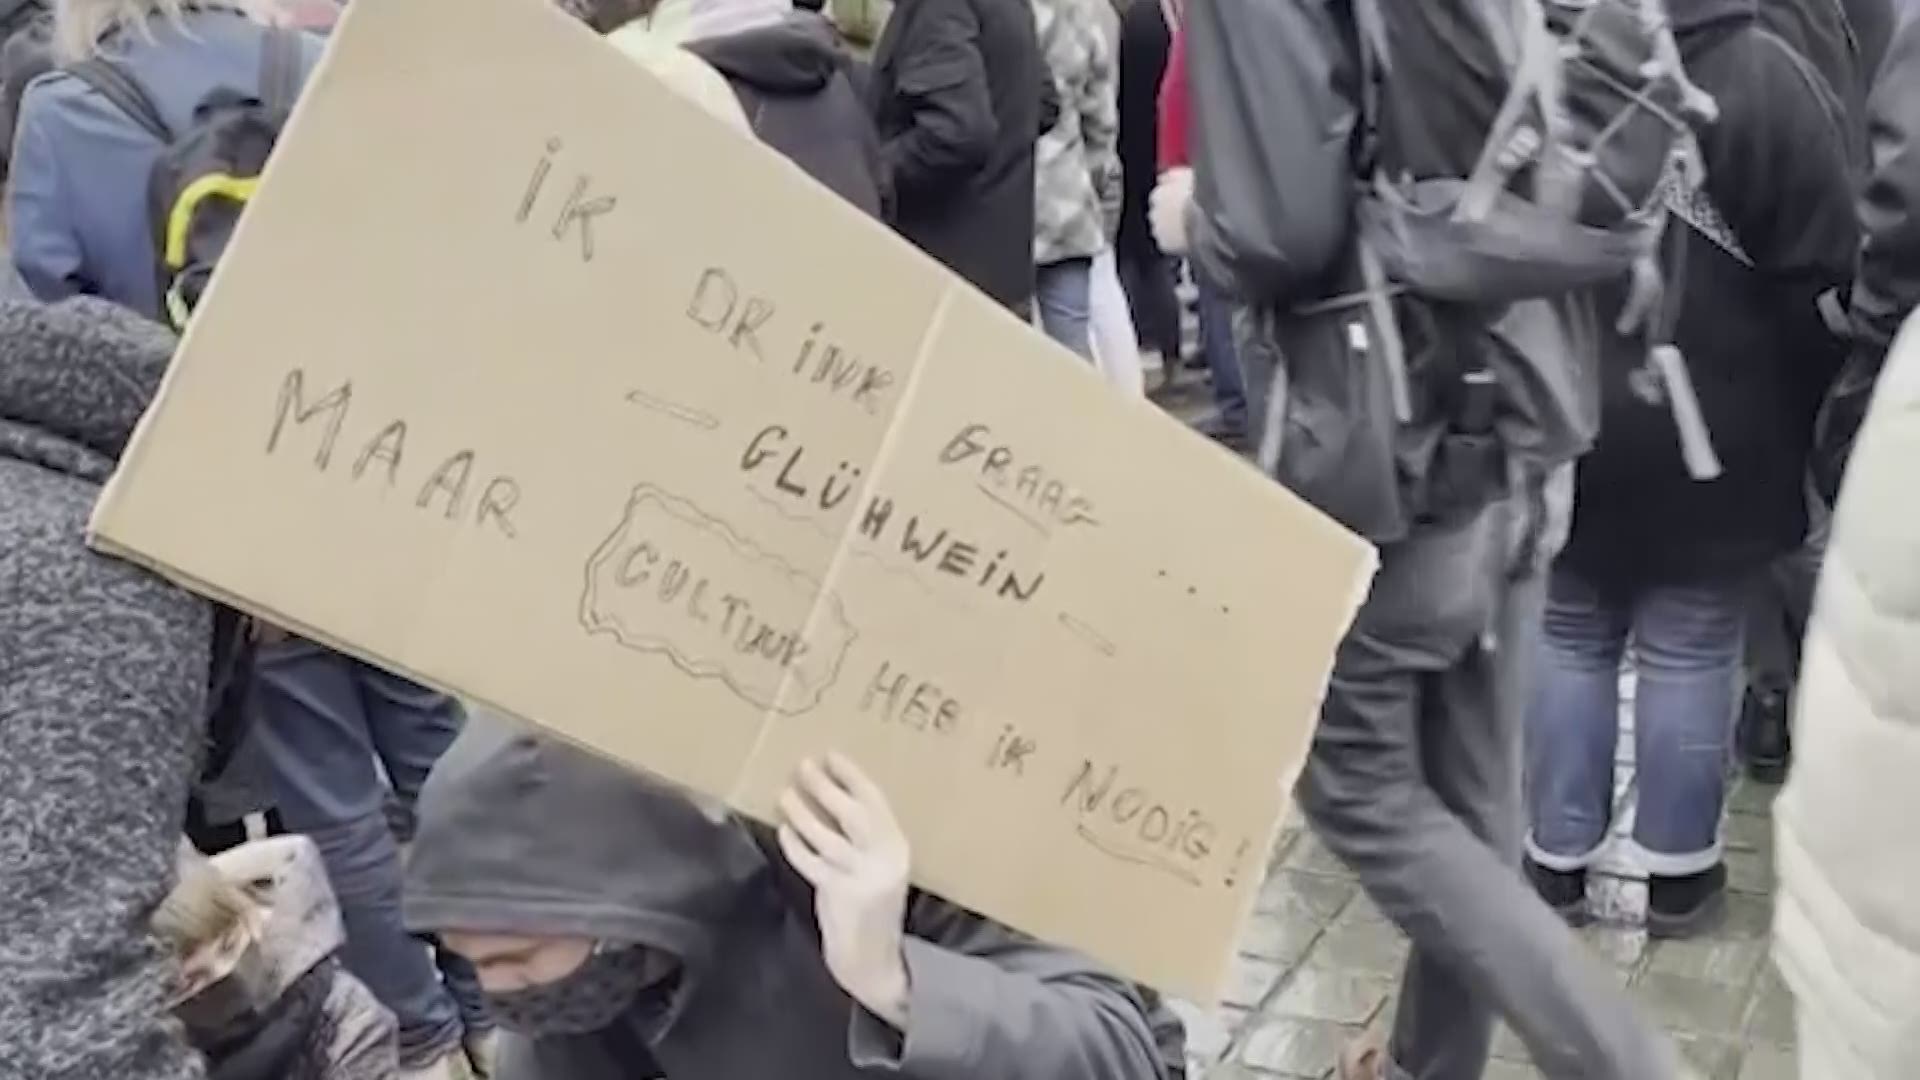 iK DRiNK GRAAG ...
- GLÜHWEiN -
MAAR CULTUUR HEB iK NODiG!